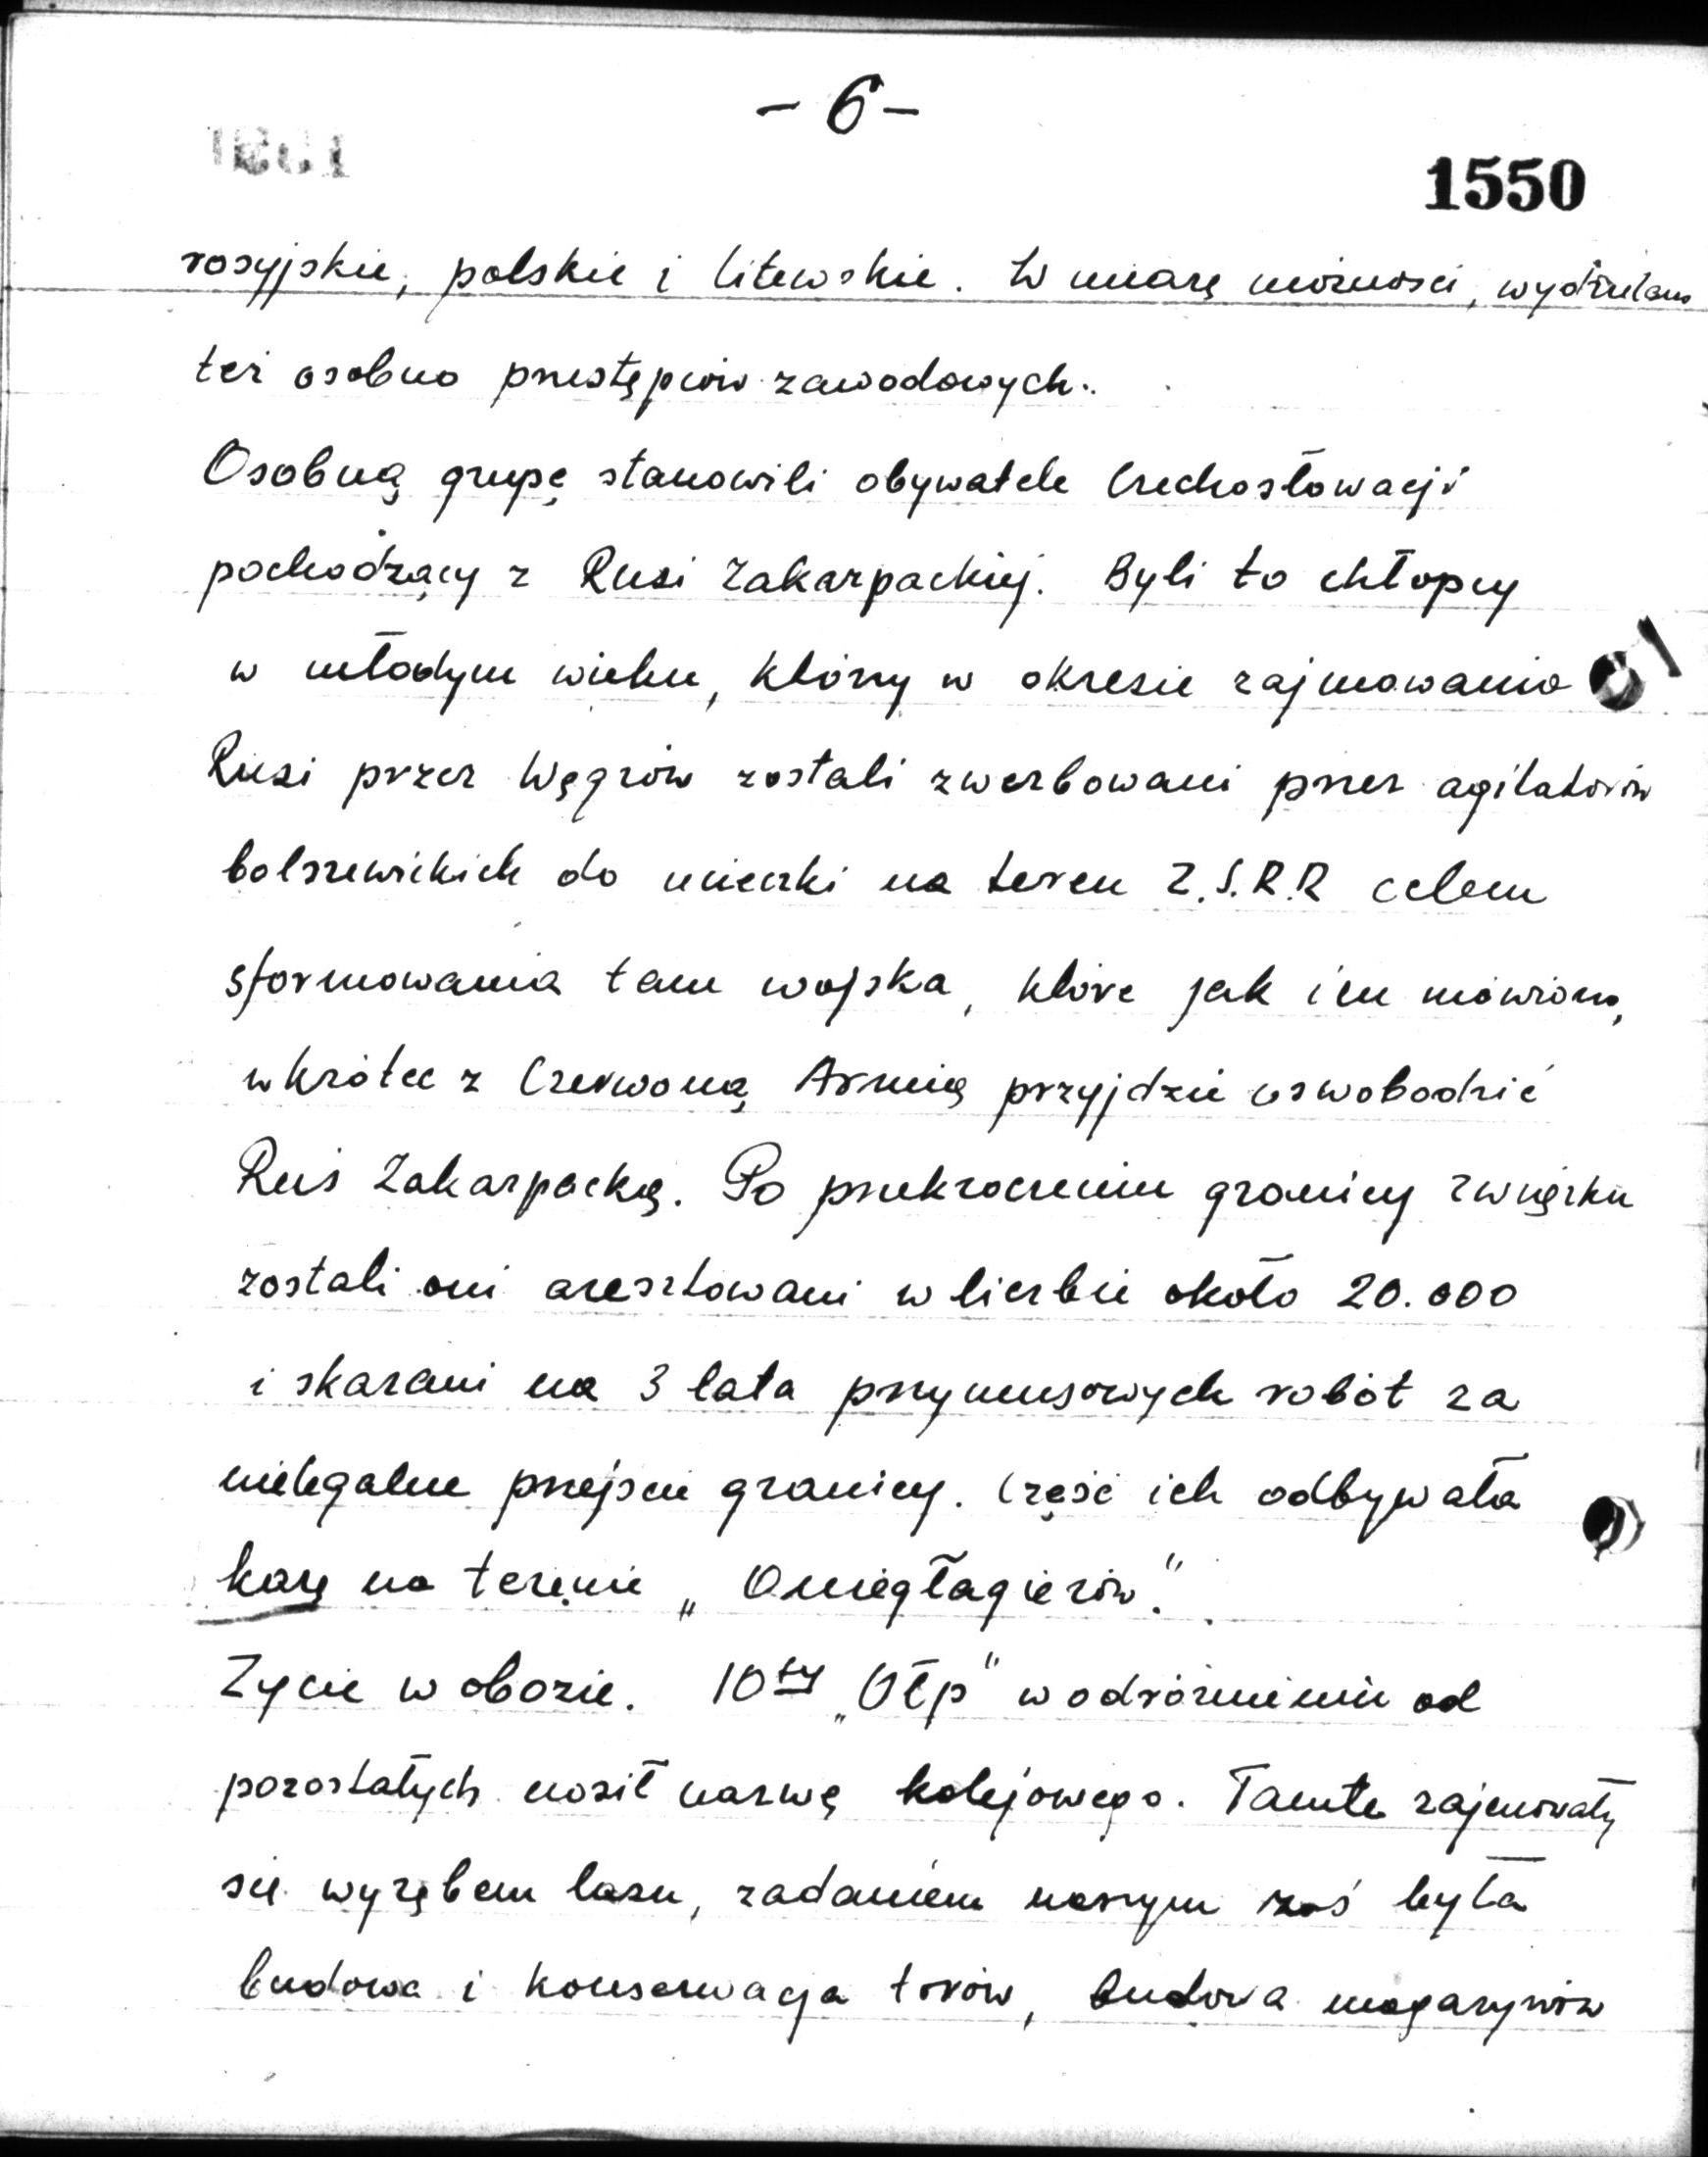 - 6 -
1550
rosyjskie, polskie i litewskie. W miarę możności, wydzielano
też osobno przestępców zawodowych.
Osobną grupę stanowili obywatele Czechosłowacji
pochodzący z Rusi Zakarpackiej. Byli to chłopcy
w młodym wieku, którzy w okresie zajmowania
Rusi przez Węgrów zostali zwerbowani przez agitatorów
bolszewickich do ucieczki na teren Z.S.R.R celem
sformowania tam wojska, które jak im mówiono,
wkrótce z Czerwoną Armią przyjdzie uswobodzić
Ruś Zakarpacką. Po przekroczeniu granicy Związku
zostali oni aresztowani w liczbie około 20.000
i skazani na 3 lata przymusowych robót za
nielegalne przejście granicy. Część ich odbywała
karę na terenie „Oniegłagierów."
Życie w obozie. 10ty „Ołp" w odróżnieniu od
pozostałych nosił nazwę kolejowego. Tamte zajmowały
się wyrębem lasu, zadaniem naszym zaś była
budowa i konserwacja torów, budowa magazynów